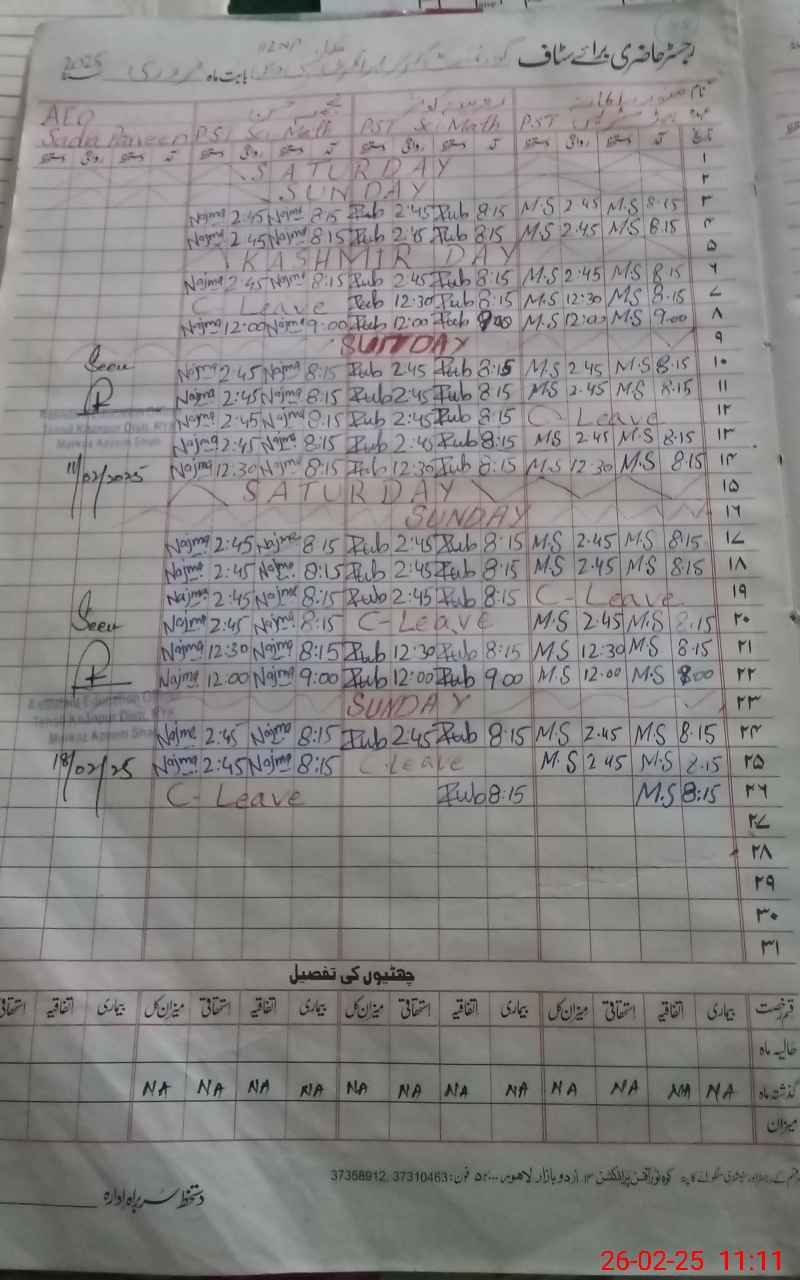 رجسٹر حاضری برائے سٹاف
بابت ماہ فروری سنہ 2025
AEO
Sadia Parveen PST Sc. Math PST Sc. Math PST
۱ SATURDAY
۲ SUNDAY
۳ M.S 8:15 M.S 2.45 Rub 8:15 Rub 2:45 Najma 8:15 Najma 2:45
۴ M.S 8.15 M.S 2.45 Rub 8:15 Rub 2:45 Najma 8:15 Najma 2:45
۵ KASHMIR DAY
۶ M.S 8:15 M.S 2:45 Rub 8:15 Rub 2:45 Najma 8:15 Najma 2:45
۷ M.S 8.15 M.S 12:30 Rub 8:15 Rub 12:30 C- Leave
۸ M.S 9.00 M.S 12:00 Rub 9:00 Rub 12:00 Najma 9:00 Najma 12:00
۹ SUNDAY
۱۰ M.S 8.15 M.S 2.45 Rub 8:15 Rub 2:45 Najma 8:15 Najma 2:45 Seen
۱۱ M.S 8.15 M.S 2.45 Rub 8:15 Rub 2:45 Najma 8:15 Najma 2:45
۱۲ C- Leave Rub 8:15 Rub 2:45 Najma 8:15 Najma 2:45
۱۳ M.S 8:15 M.S 2.45 Rub 8:15 Rub 2:45 Najma 8:15 Najma 2:45
۱۴ M.S 8:15 M.S 12:30 Rub 8:15 Rub 12:30 Najma 8:15 Najma 12:30 11/02/2025
۱۵ SATURDAY
۱۶ SUNDAY
۱۷ M.S 8:15 M.S 2.45 Rub 8:15 Rub 2:45 Najma 8:15 Najma 2:45
۱۸ M.S 8.15 M.S 2.45 Rub 8:15 Rub 2:45 Najma 8:15 Najma 2:45
۱۹ C- Leave Rub 8:15 Rub 2:45 Najma 8:15 Najma 2:45
۲۰ M.S 8.15 M.S 2.45 C- Leave Najma 8:15 Najma 2:45 Seen
۲۱ M.S 8.15 M.S 12:30 Rub 8:15 Rub 12:30 Najma 8:15 Najma 12:30
۲۲ M.S 8:00 M.S 12.00 Rub 9.00 Rub 12:00 Najma 9:00 Najma 12.00
۲۳ SUNDAY
۲۴ M.S 8.15 M.S 2.45 Rub 8:15 Rub 2:45 Najma 8:15 Najma 2:45
۲۵ M.S 8.15 M.S 2.45 C- Leave Najma 8:15 Najma 2:45 18/02/25
۲۶ M.S 8:15 Rub 8:15 C- Leave
۲۷
۲۸
۲۹
۳۰
۳۱
چھٹیوں کی تفصیل
قسم رخصت بیماری اتفاقیہ استحقاقی میزان کل بیماری اتفاقیہ استحقاقی میزان کل بیماری اتفاقیہ استحقاقی میزان کل بیماری اتفاقیہ استحقاقی
حالیہ ماہ
گذشتہ ماہ NA NA NA NA NA NA NA NA NA NA NA NA
میزان
اردو بازار لاہور فون: 37310463, 37358912
دستخط سربراہ ادارہ
26-02-25 11:11